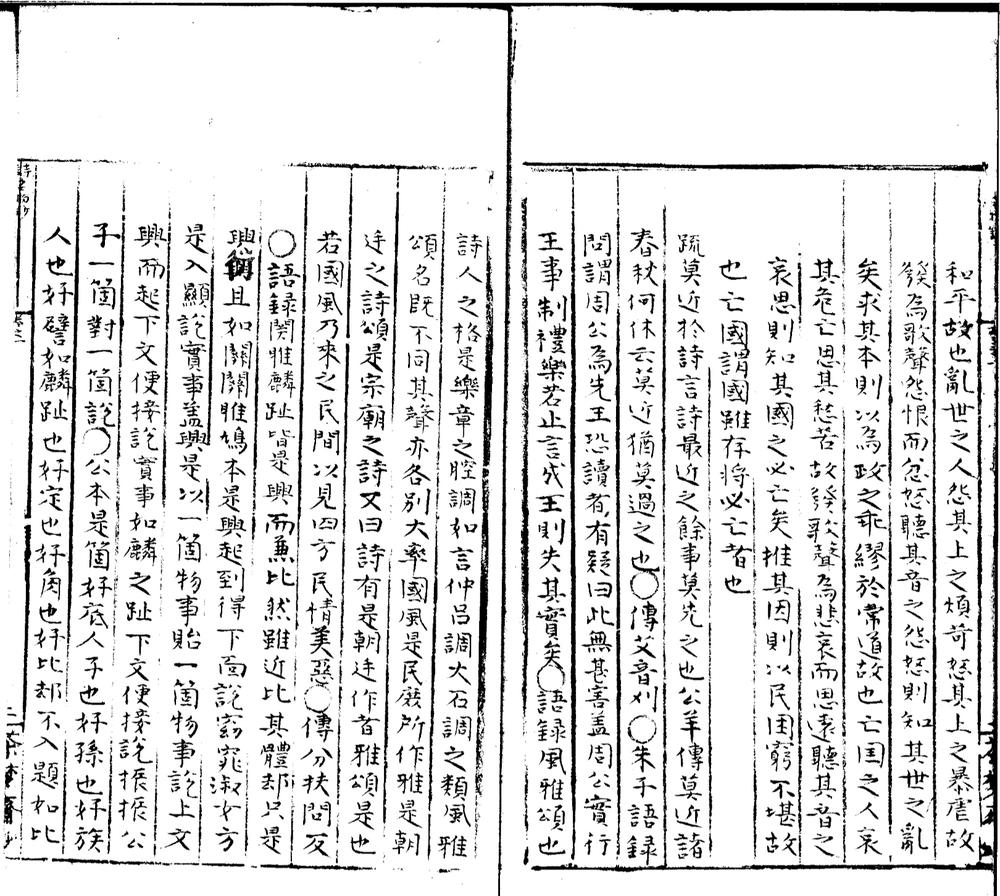 和平故也亂世之人怨其上之煩苛怒其上之暴虐故
發為歌聲怨恨而忿怒聽其音之怨怒則知其世之亂
矣求其本則以為政之乖繆於常道故也亡国之人哀
其危亡思其愁苦故發歌聲為悲哀而思遠聽其音之
哀思則知其國之必亡矣推其因則以民困窮不堪故
也亡國謂國雖存将必亡者也
疏莫近於詩言詩最近之餘事莫先之也公羊傳莫近諸
春秋何休云莫近猶莫過之也○傳艾音刈○朱子語録
問謂周公為先王恐讀者有疑曰此無甚害盖周公實行
王事制禮樂若止言成王則失其實矣○語録風雅頌也
詩人之格是樂章之腔調如言仲吕調大石調之類風雅
頌名既不同其聲亦各别大率國風是民庶所作雅是朝
廷之詩頌是宗廟之詩又曰詩有是朝廷作者雅頌是也
若國風乃采之民間以見四方民情美惡○傳分扶問反
○語録関雎麟趾皆是興而兼比然雖近比其體却只是
興且如關關雎鳩本是興起到得下面說窈窕淑女方
是入題說實事盖興是以一箇物事貽一箇物事說上文
興而起下文便接說實事如麟之趾下文便接說振振公
子一箇對一箇說○公本是箇好底人子也好孫也好族
人也好譬如麟趾也好定也好角也好比却不入題如比